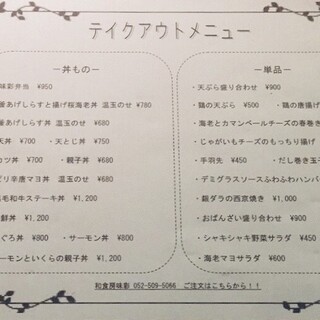 テイクアウトメニュー
－丼もの－
味彩弁当 ¥950
釜あげしらすと揚げ桜海老丼 温玉のせ ¥780
釜あげしらす丼 温玉のせ ¥680
天丼 ¥700 ・天とじ丼 ¥750
カツ丼 ¥700 ・親子丼 ¥680
ピリ辛唐マヨ丼 温玉のせ ¥680
毛和牛ステーキ丼 ¥1,200
鮮丼 ¥1,200
ぐろ丼 ¥800 ・サーモン丼 ¥800
ーモンといくらの親子丼 ¥1,200
－単品－
・天ぷら盛り合わせ ¥900
・鶏の天ぷら ¥500 ・鶏の唐揚げ
・海老とカマンベールチーズの春巻き
・じゃがいもチーズのもっちり揚げ
・手羽先 ¥450 ・だし巻き玉子
・デミグラスソースふわふわハンバ
・銀ダラの西京焼き ¥1,000
・おばんざい盛り合わせ ¥900
・シャキシャキ野菜サラダ ¥450
・海老マヨサラダ ¥600
和食房味彩 052-509-5066 ご注文はこちらから！！